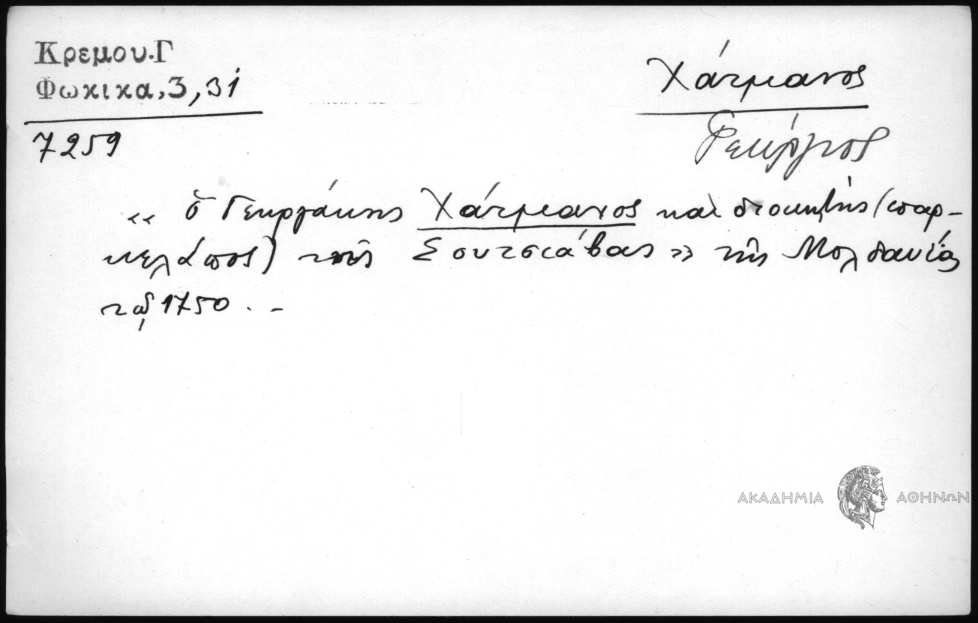 Κρεμου.Γ
Φωκικα,3,31
7259
Χάτμανος
Γεώργιος
“ ὁ Γεωργάκης Χάτμανος καὶ διοικητὴς (παρ-
κελάπος) τῆς Σουτσιάβας» τῆς Μολδαυίας
τῷ 1750. -
ΑΚΑΔΗΜΙΑ ΑΘΗΝΩΝ